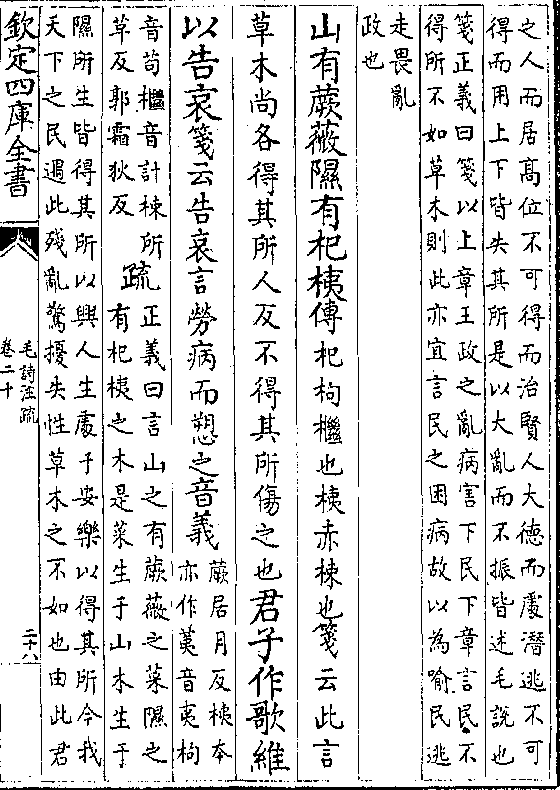 之人而居髙位不可得而治賢人大德而處潛逃不可
得而用上下皆失其所是以大亂而不振皆述毛說也
箋正義曰箋以上章王政之亂病害下民下章言民不
得所不如草木則此亦宜言民之困病故以為喻民逃
走畏亂
政也
山有蕨薇隰有杞桋傳杞枸檵也桋赤楝也箋云此言
草木尚各得其所人反不得其所傷之也君子作歌維
以告哀箋云告哀言勞病而愬之音義
蕨居月反桋本
亦作荑音夷枸
音苟檵音計楝所
草反郭霜狄反
疏
正義曰言山之有蕨薇之菜隰之
有杞桋之木是菜生于山木生于
隰所生皆得其所以興人生處于安樂以得其所今我
天下之民遇此殘亂驚擾失性草木之不如也由此君
欽定四庫全書
毛詩注疏
卷二十
二十八